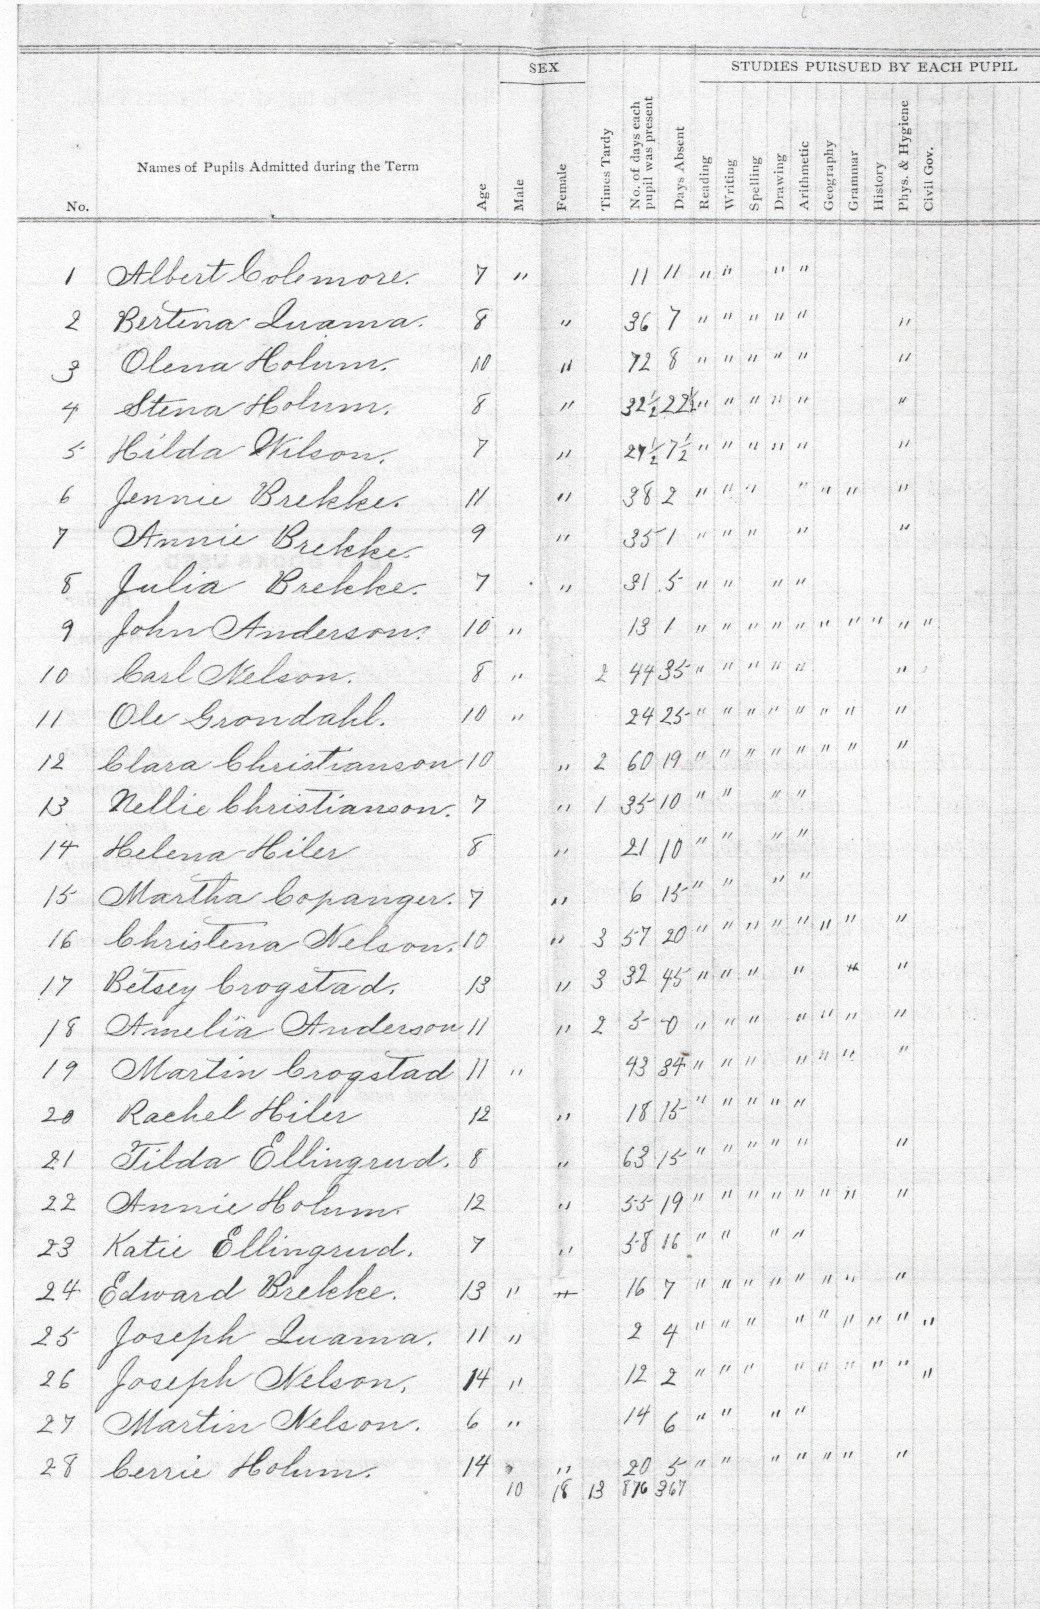 SEX STUDIES PURSUED BY EACH PUPIL
No. Names of Pupils Admitted during the Term Age Male Female Times Tardy No. of days each pupil was present Days Absent Reading Writing Spelling Drawing Arithmetic Geography Grammar History Phys. & Hygiene Civil Gov.
1 Albert Colemore. 7 " 11 11 " " " "
2 Bertena Quama. 8 " 36 7 " " " " " "
3 Olena Holum. 10 " 72 8 " " " " " "
4 Stena Holum. 8 " 32½ 22½ " " " " " "
5 Hilda Wilson. 7 " 27½ 7½ " " " " " "
6 Jennie Brekke. 11 " 38 2 " " " " " " "
7 Annie Brekke. 9 " 35 1 " " " " "
8 Julia Brekke. 7 " 31 5 " " " "
9 John Anderson. 10 " 13 1 " " " " " " " " " "
10 Carl Nelson. 8 " 2 44 35 " " " " " "
11 Ole Grondahl. 10 " 24 25 " " " " " " " "
12 Clara Christianson 10 " 2 60 19 " " " " " " " "
13 Nellie Christianson. 7 " 1 35 10 " " " "
14 Helena Hiler 8 " 21 10 " " " "
15 Martha Copanger. 7 " 6 15 " " " "
16 Christena Nelson. 10 " 3 57 20 " " " " " " " "
17 Betsey Crogstad. 13 " 3 32 45 " " " " " "
18 Amelia Anderson 11 " 2 5 0 " " " " " " "
19 Martin Crogstad 11 " 43 34 " " " " " " "
20 Rachel Hiler 12 " 18 15 " " " " "
21 Tilda Ellingrud. 8 " 63 15 " " " " " "
22 Annie Holum. 12 " 55 19 " " " " " " " "
23 Katie Ellingrud. 7 " 58 16 " " " "
24 Edward Brekke. 13 " " 16 7 " " " " " " " "
25 Joseph Quama. 11 " 2 4 " " " " " " " " "
26 Joseph Nelson. 14 " 12 2 " " " " " " " " "
27 Martin Nelson. 6 " 14 6 " " " "
28 Cerrie Holum. 14 " 20 5 " " " " " " "
10 18 13 876 367